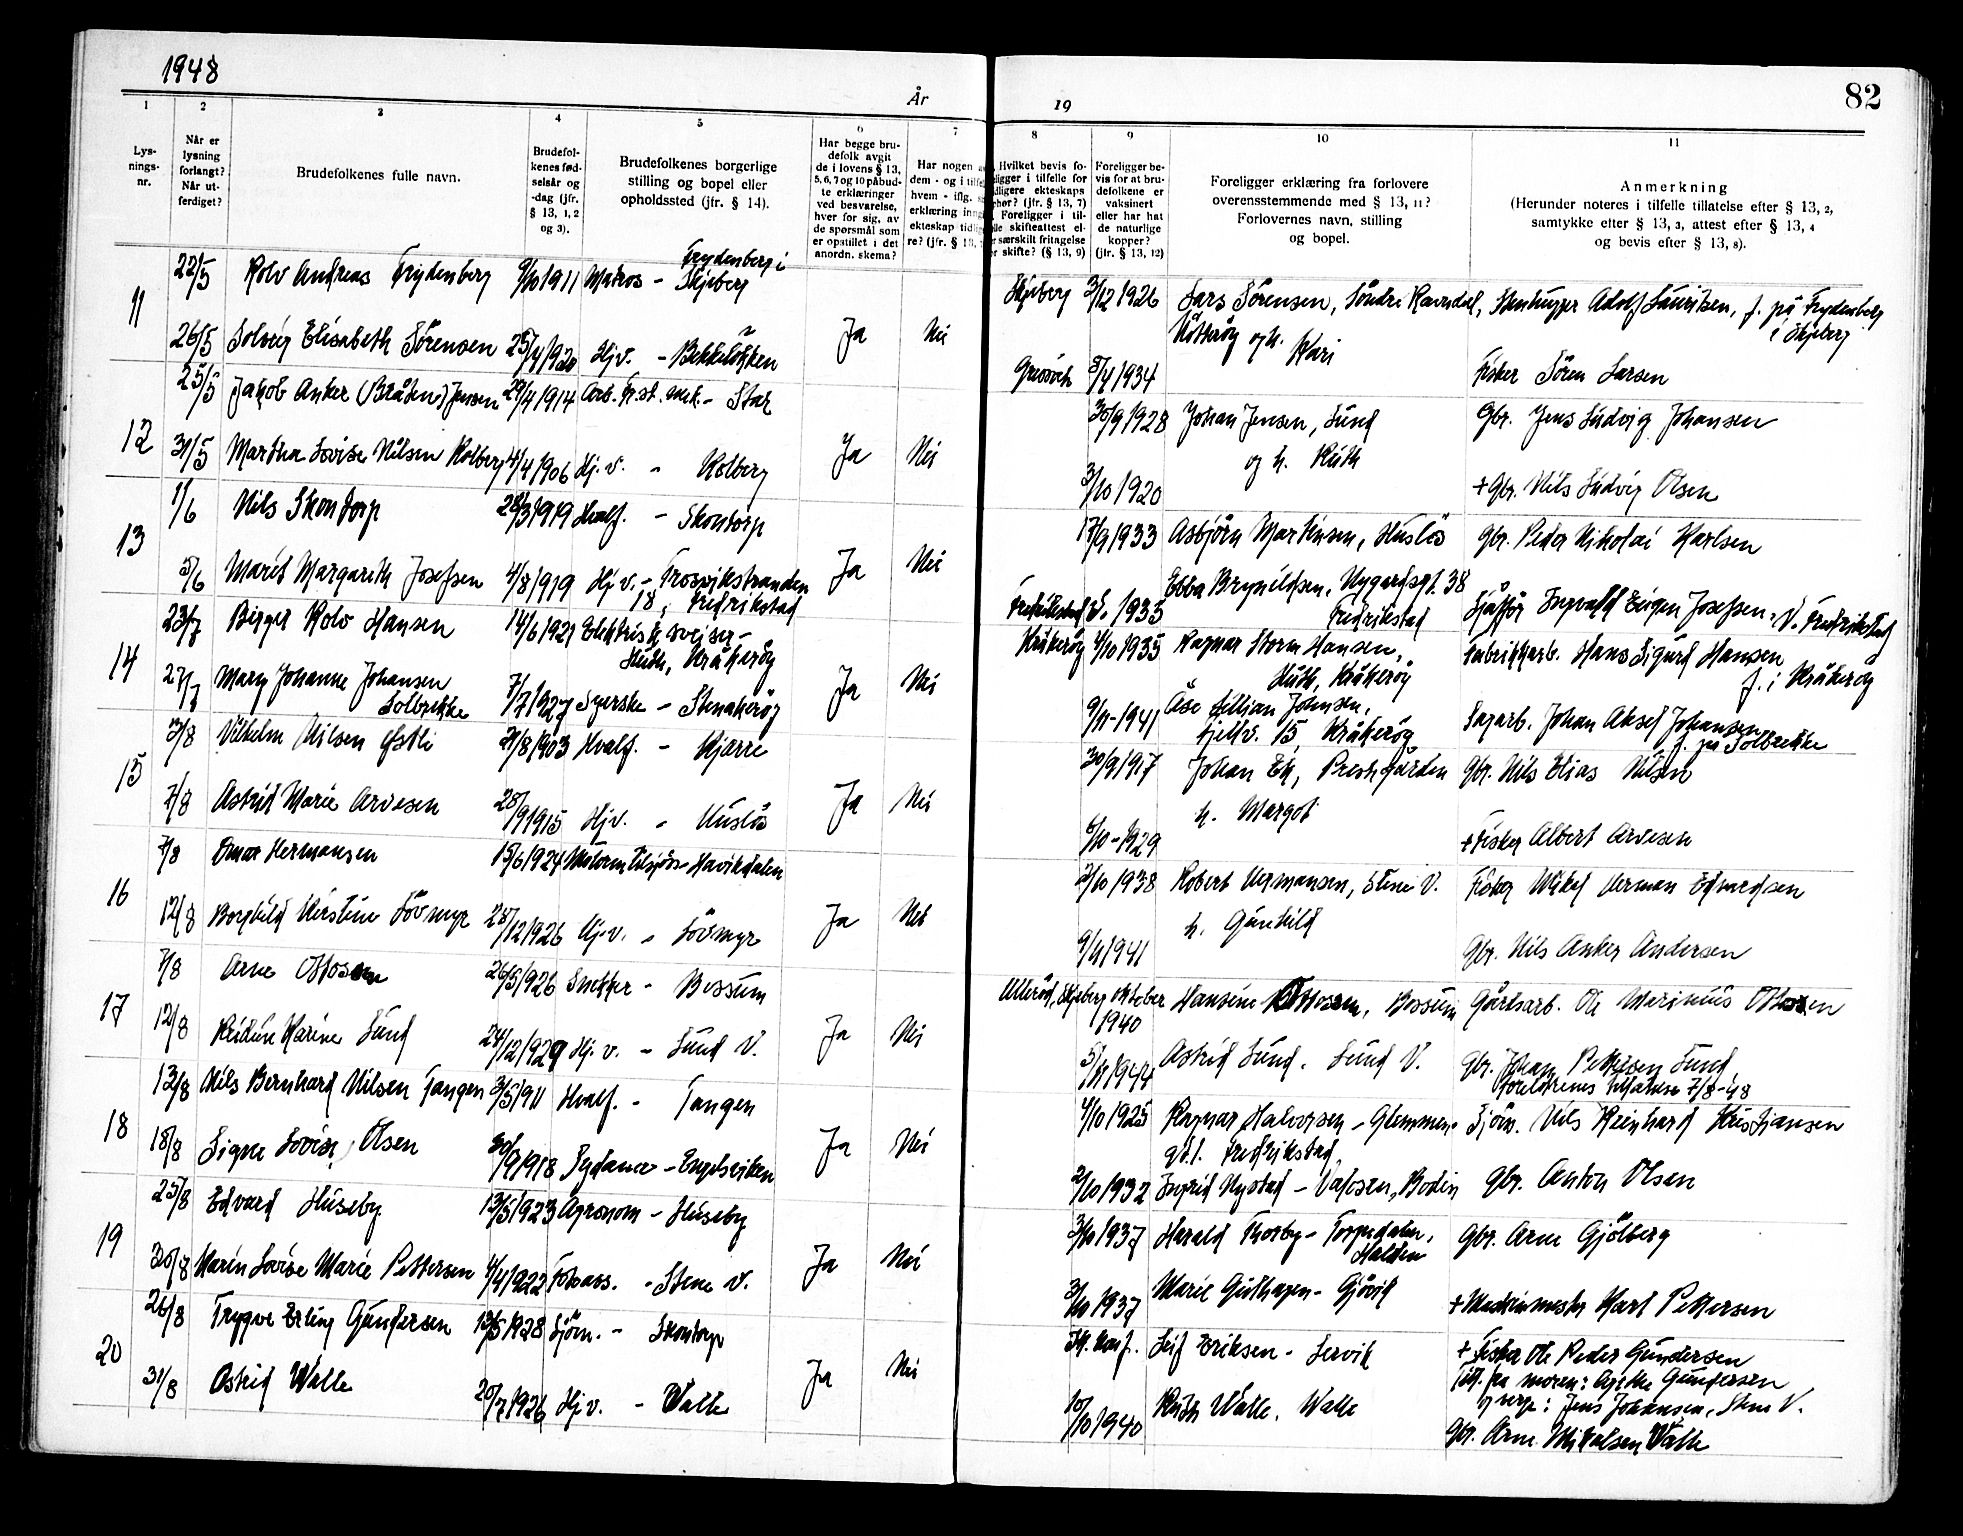 1948
År
19
82
1 2 3 4 5 6 7 8 9 10 11
Lys-
nings-
nr.
Når er
lysning
forlangt?
Når ut-
ferdiget?
Brudefolkenes fulle navn.
Brudefol-
kenes fød-
selsår og
-dag (jfr.
§ 13, 1, 2
og 3).
Brudefolkenes borgerlige
stilling og bopel eller
opholdssted (jfr. § 14).
Har begge bru-
defolk avgit
de i lovens § 13,
5, 6, 7 og 10 påbud-
te erklæringer
ved besvarelse,
hver for sig, av
de spørsmål som
er opstillet i det
anordn. skema?
Har nogen a
dem - og i tilfe
hvem - iflg. s
erklæring inng
ekteskap tidlig
re? (jfr. § 13,
Hvilket bevis fo-
ligger i tilfelle for
dligere ekteskaps
hør? (jfr. § 13, 7)
Foreligger i til-
lle skifteattest el-
r særskilt fritagelse
r skifte? (§ 13, 9)
Foreligger be-
vis for at bru-
defolkene er
vaksinert
eller har hat
de naturlige
kopper?
(jfr. § 13, 12)
Foreligger erklæring fra forlovere
overensstemmende med § 13, 11?
Forlovernes navn, stilling
og bopel.
Anmerkning
(Herunder noteres i tilfelle tillatelse efter § 13, 2,
samtykke efter § 13, 3, attest efter § 13, 4
og bevis efter § 13, 8).
11
22/5 Rolv Andreas Frydenberg 9/10 1911 Matros - Frydenberg i
Skjeberg
Skjeberg 3/12 1926 Lars Sörensen, Söndre Ravndal, Stenhugger Adolf Lauritsen, f. på Frydenberg
i Skjeberg
26/5 Solveig Elisabeth Sörensen 25/4 1920 Hj.v. - Bekkelökken Ja Nei
og h. Kari
8/4 1934 Fisker Sören Larsen
12
25/5 Jakob Anker (Bråten) Jensen 29/4 1914 Arb. Fr.st. mek. -
30/9 1928 Johan Jensen, Lund Gbr. Jens Ludvig Johansen
31/5 Martha Lovise Nilsen Kolberg 4/4 1906 Hj.v. - Kolberg Ja Nei
og h. Ruth
3/10 1920 + Gbr. Nils Ludvig Olsen
13
1/6 Nils Skontorp 28/3 1919 Hvalf. - Skontorp
17/9 1933 Asbjörn Martinsen, Huslös Gbr. Peder Nikolai Karlsen
5/6 Marit Margareth Josefsen 4/8 1919 Hj.v. - Trosvikstranden
18, Fredrikstad Ja Nei
Fredrikstad 1935 Ebba Brynildsen, Nygardsgt. 38
Fredrikstad Sjåfför Ingvald Eugen Josefsen, V. Fredrikstad
14
23/7 Birger Rolv Hansen 14/6 1921 Elektrisk sveiser -
Huth, Kråkeröy
Kråkeröy 4/10 1935 Ragnar Storm Hansen,
Huth, Kråkeröy Fabrikkarb. Hans Sigurd Hansen
f. i Kråkeröy
27/7 Mary Johanne Johansen
Solbrekke 7/7 1927 Syerske - Stenakeröy Ja Nei
9/11-1941 Åse Lillian Johnsen,
Ljellv. 15, Kråkeröy Sagarb. Johan Aksel Johansen
f. på Solbrekke
15
3/8 Vilhelm Nilsen Østli 21/8 1903 Hvalf. - Kjærre
30/9 1917 Johan Ek, Prestegården Gbr. Nils Elias Nilsen
7/8 Astrid Marie Arvesen 28/9 1915 Hj.v. - Huslös Ja Nei
h. Margot
6/10-1929 + Fisker Albert Arvesen
16
7/8 Omar Hermansen 15/6 1924 Havikdalen
2/10 1938 Robert Hermansen, Stene V. Fisker Mikal Herman Edvardsen
12/8 Borghild Kirstine Lövmyr 28/12 1926 Hj.v. - Lövmyr Ja Nei
h. Gunhild
9/11 1941 Gbr. Nils Anker Andersen
17
7/8 Arne Ottosen 26/5 1926 Snekker - Bossum
Ulleröd, Skjeberg oktober
1940 Hansine Ottosen, Bossum Gårdsarb. Ole Marinius Ottosen
12/8 Reidun Karine Lund 24/12 1929 Hj.v. - Lund V. Ja Nei
5/11 1944 Astrid Lund. Lund V. Gbr. Johan Pettersen Lund
Foreldrenes tillatelse 7/8-48
18
13/8 Nils Bernhard Nilsen Tangen 3/5 1911 Hvalf. - Tangen
4/10 1925 Ragnar Halvorsen - Glemmen-
gt.1. Fredrikstad. Sjöm. Nils Reinhard Kristiansen
18/8 Signe Lovise Olsen 20/9 1918 Sydame - Engelsviken Ja Nei
2/10 1932 Ingrid Nystad - Valosen, Bodin Gbr. Anton Olsen
19
25/8 Edvard Huseby 13/5 1923 Agronom - Huseby
3/10 1937 Harald Thorby - Torpedalen,
Halden Gbr. Arne Gjölberg
30/8 Karin Lovise Marie Pettersen 4/4 1922 - Stene V. Ja Nei
3/10 1937 Marie Guthagen - Gjövik + Maskinmester Karl Pettersen
20
26/8 Trygve Erling Gundersen 13/5 1928 Sjöm. - Skontorp
Leif Eriksen - Lervik + Fisker Ole Peder Gundersen
till. fra moren: Agathe Gundersen
og verge: Jens Johansen, Stene V.
31/8 Astrid Walle 20/7 1926 Hj.v. - Walle Ja Nei
10/10 1940 Ruth Walle. Walle Gbr. Arne Mikalsen Walle